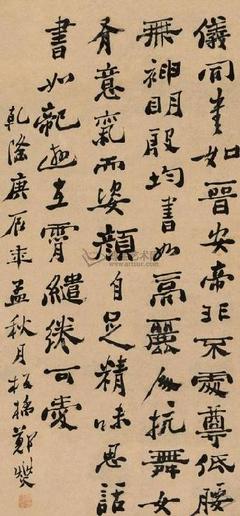 儀同書如晉安帝非不處尊低腰
無神明殷均書如高麗人抗舞女
有意氣而姿顏自足精味思話
書如龍遊在霄繾綣可愛
乾隆庚辰年孟秋月板橋鄭燮